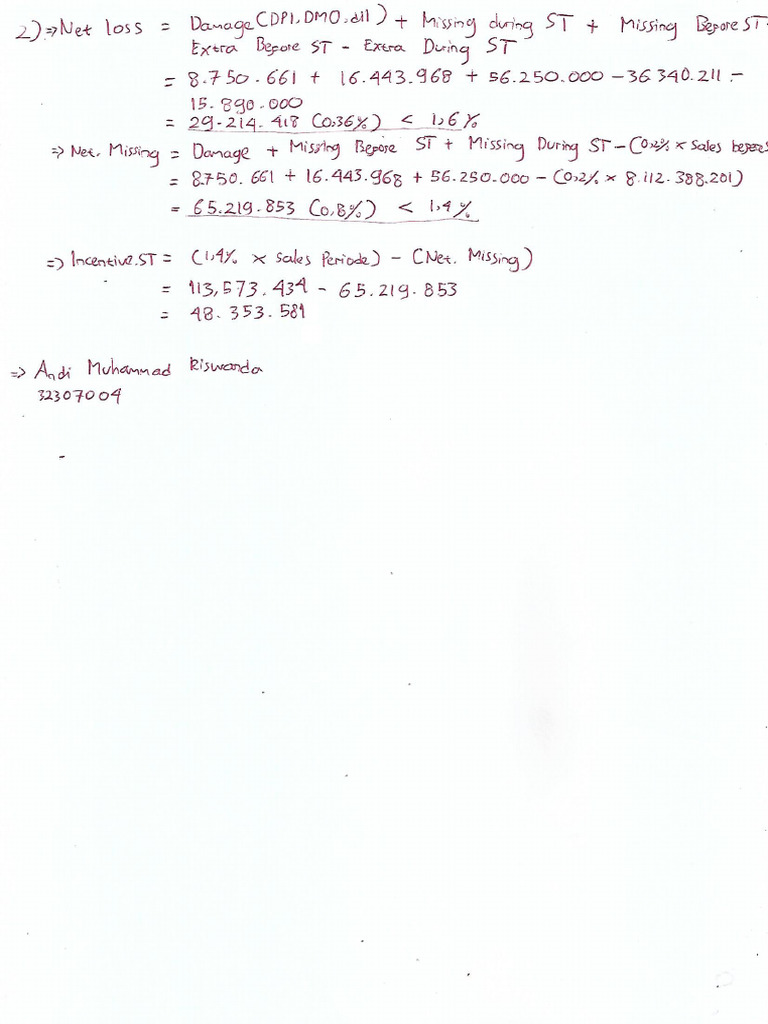 2) ⇒ Net loss = Damage (DPI, DMO, dll) + Missing during ST + Missing Before ST -
Extra Before ST - Extra During ST
= 8.750.661 + 16.443.968 + 56.250.000 - 36 340.211 -
15.890.000
= 29.214.418 (0,36%) < 1,6%
⇒ Net. Missing = Damage + Missing Before ST + Missing During ST - (0,2% x Sales before
= 8.750.661 + 16.443.968 + 56.250.000 - (0,2% x 8.112.388.201)
= 65.219.853 (0,8%) < 1,4%
⇒ Incentive.ST = (1,4% x Sales Periode) - (Net. Missing)
= 113,573.434 - 65.219.853
= 48.353.581
⇒ Andi Muhammad Riswanda
32307004